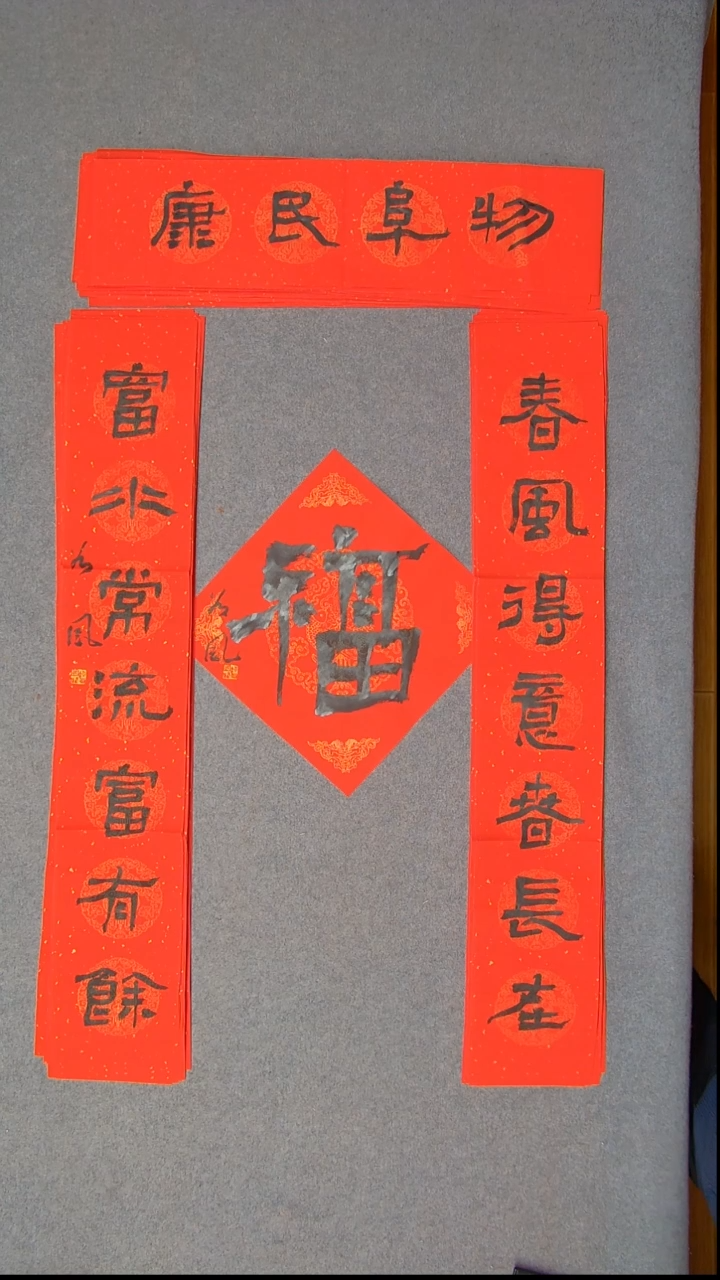 物阜民康
春風得意春長在
富水常流富有餘
福